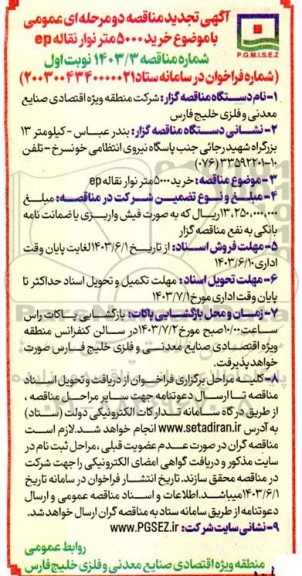 آگهی تجدید مناقصه دو مرحله ای عمومی
با موضوع خرید ۵۰۰۰ متر نوار نقاله ep
شماره مناقصه ۱۴۰۳/۳ نوبت اول
P.G.M.I.S.E.Z
(شماره فراخوان در سامانه ستاد ۲۰۰۳۰۰۴۳۴۰۰۰۰۰۲۱)
۱-نام دستگاه مناقصه گزار: شرکت منطقه ویژه اقتصادی صنایع
معدنی و فلزی خلیج فارس
۲- نشانی دستگاه مناقصه گزار: بندر عباس - کیلومتر ۱۳
بزرگراه شهید رجائی جنب پاسگاه نیروی انتظامی خونسرخ - تلفن
۱۰-۳۳۵۹۲۲۰۱ (۰۷۶)
۳- موضوع مناقصه: خرید ۵۰۰۰ متر نوار نقاله ep
۴- مبلغ و نوع تضمین شرکت در مناقصه: مبلغ
۱۳,۲۵۰,۰۰۰,۰۰۰ ریال که به صورت فیش واریزی یا ضمانت نامه
بانکی به نفع مناقصه گزار
۵- مهلت فروش اسناد: از تاریخ ۱۴۰۳/۶/۱ لغایت پایان وقت
اداری ۱۴۰۳/۶/۱۰
۶- مهلت تحویل اسناد: مهلت تکمیل و تحویل اسناد حداکثر تا
پایان وقت اداری مورخ ۱۴۰۳/۷/۱
۷- زمان و محل بازگشایی پاکات: بازگشایی پاکات راس
ساعت ۱۰:۰۰ صبح مورخ ۱۴۰۳/۷/۲ در سالن کنفرانس منطقه
ویژه اقتصادی صنایع معدنی و فلزی خلیج فارس صورت
خواهد پذیرفت.
۸- کلیه مراحل برگزاری فراخوان از دریافت و تحویل اسناد
مناقصه تا ارسال دعوتنامه جهت سایر مراحل مناقصه،
از طریق درگاه سامانه تدارکات الکترونیکی دولت (ستاد)
به آدرس www.setadiran.ir انجام خواهد شد. لازم است
مناقصه گران در صورت عدم عضویت قبلی، مراحل ثبت نام در
سایت مذکور و دریافت گواهی امضای الکترونیکی را جهت شرکت
در مناقصه محقق سازند. تاریخ انتشار فراخوان در سامانه تاریخ
۱۴۰۳/۶/۱ میباشد. اطلاعات و اسناد مناقصه عمومی و ارسال
دعوتنامه از طریق سامانه ستاد به مناقصه گران ارسال خواهد شد.
۹- نشانی سایت شرکت: www.PGSEZ.ir
روابط عمومی
منطقه ویژه اقتصادی صنایع معدنی و فلزی خلیج فارس